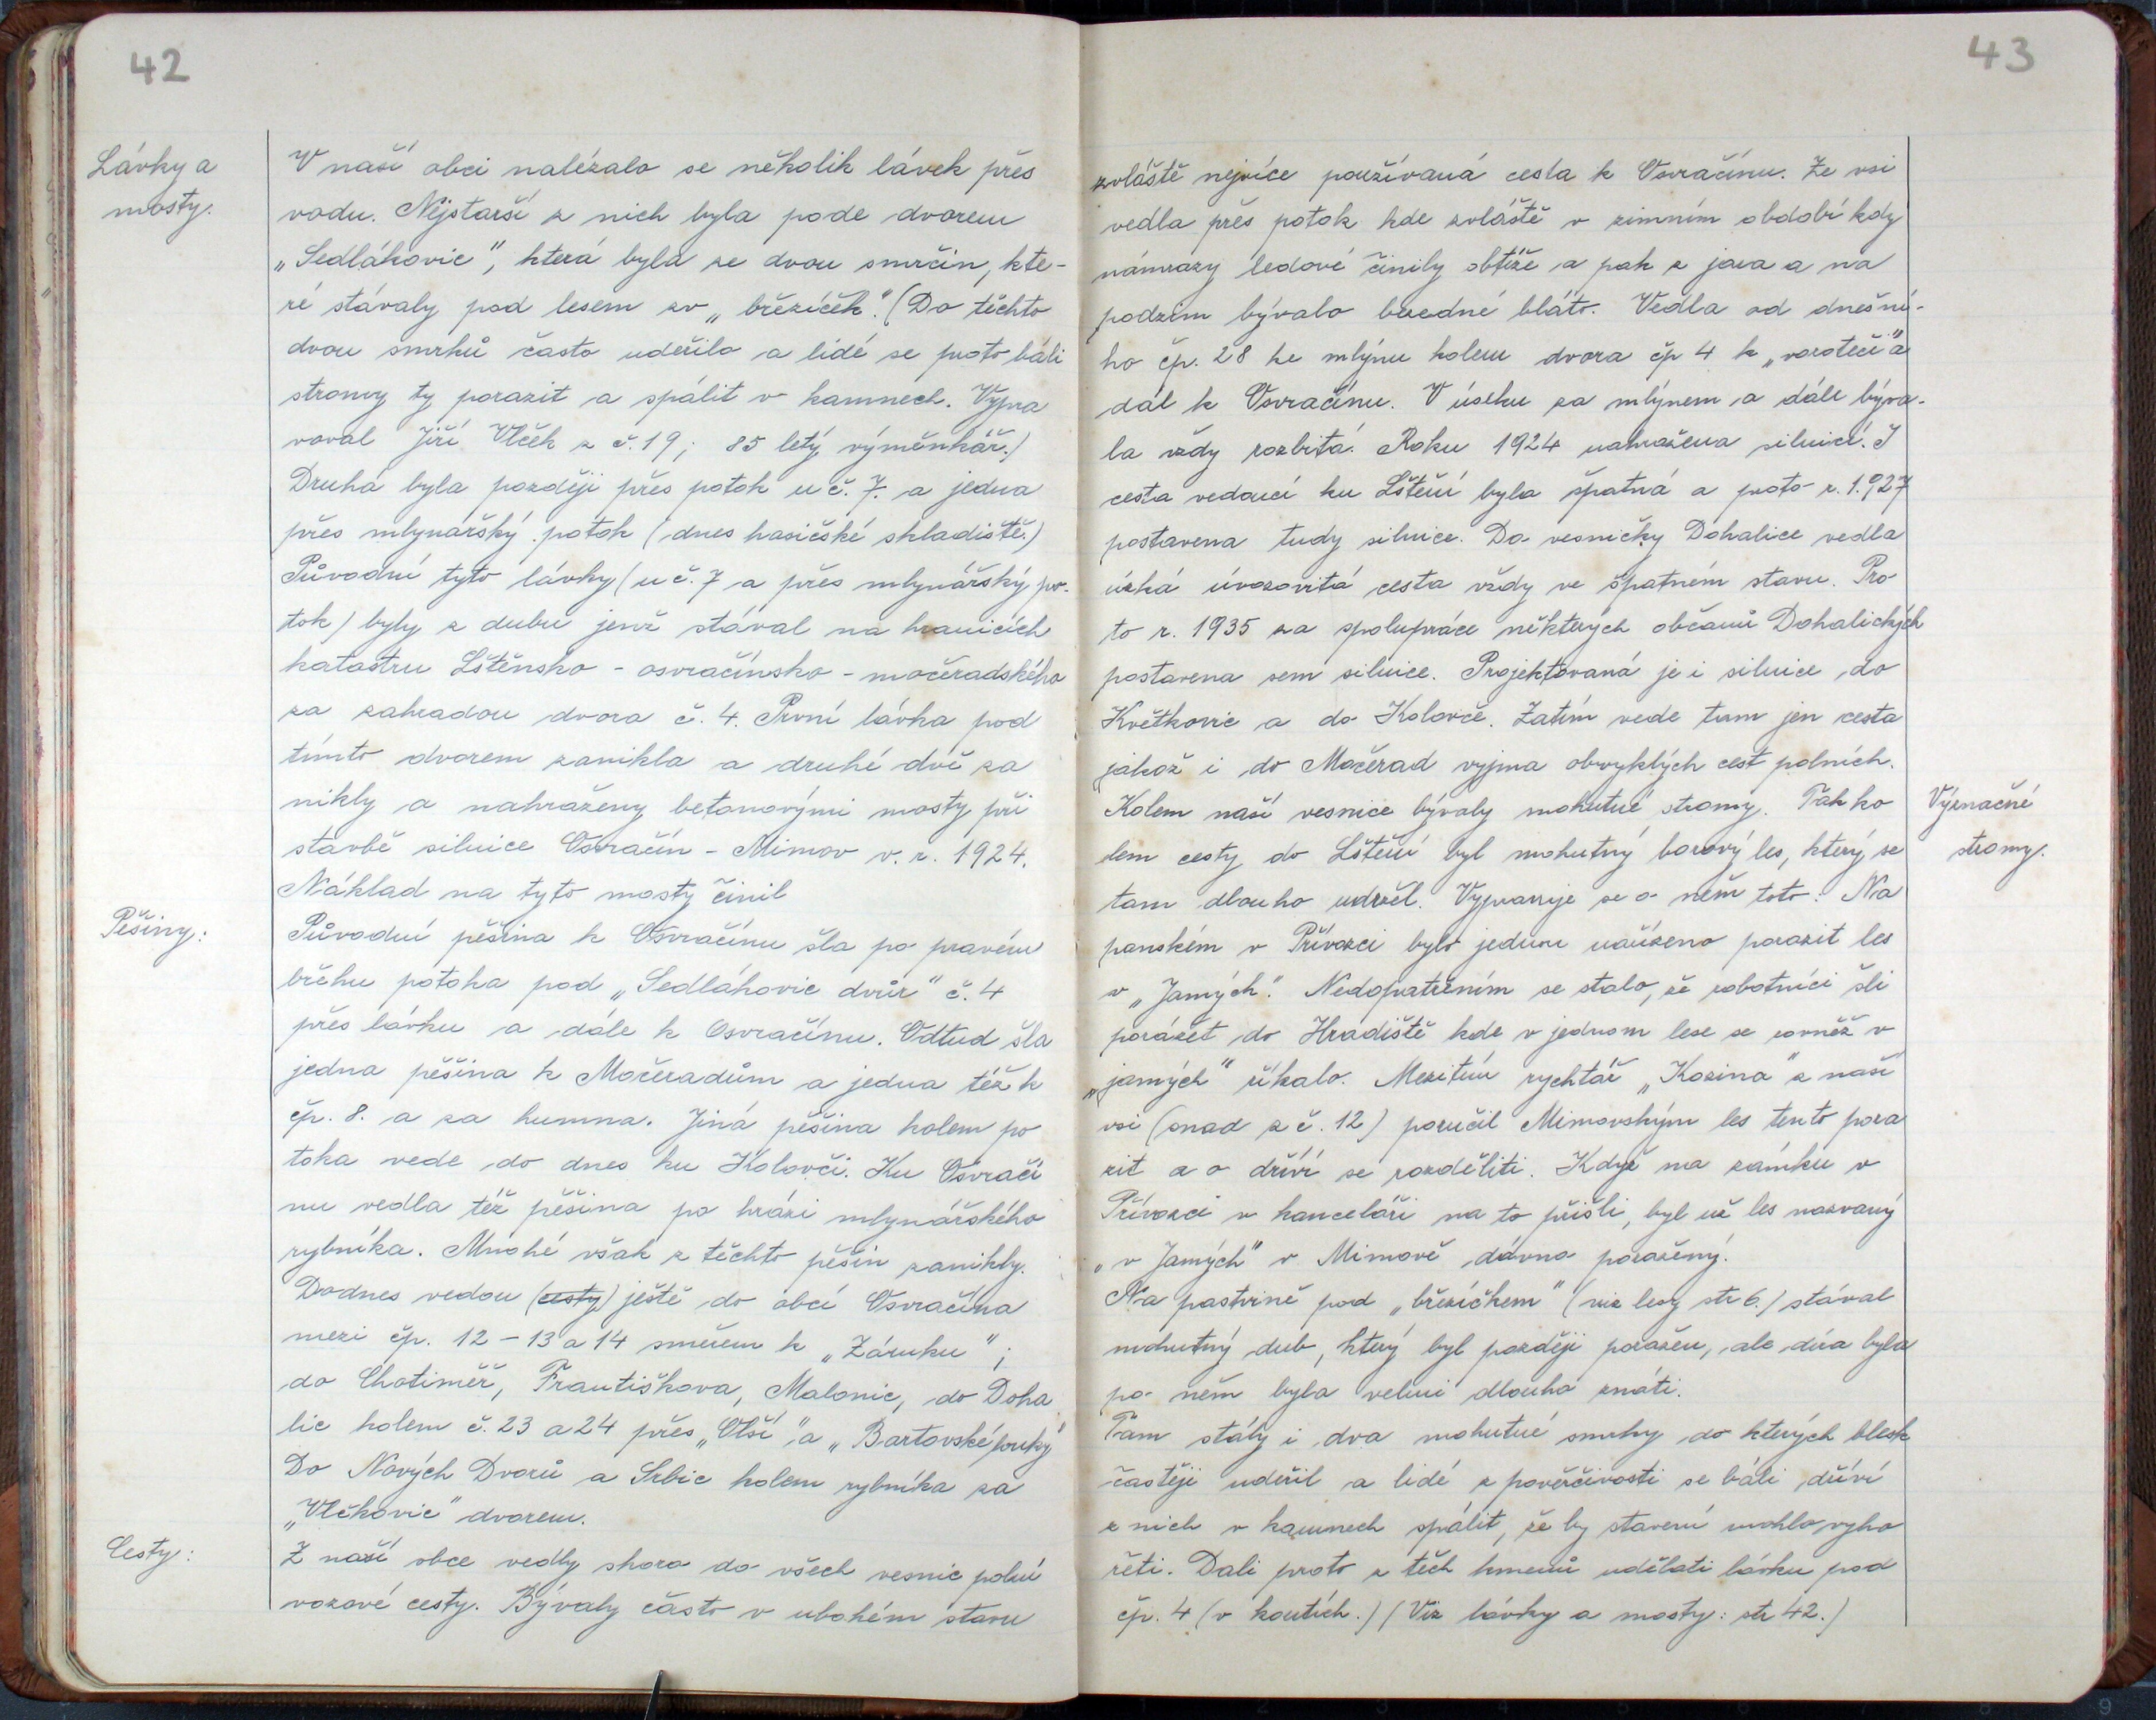 42
Lávky a
mosty.
V naší obci nalézalo se několik lávek přes
vodu. Nejstarší z nich byla pode dvorem
„Sedlákovic", která byla ze dvou smrčin, kte-
ré stávaly pod lesem zv „březíček". (Do těchto
dvou smrků často udeřilo a lidé se proto báli
stromy ty porazit a spálit v kamnech. Vypra
voval Jiří Vlček z č. 19; 85 letý výměnkář.)
Druhá byla později přes potok u č. 7. a jedna
přes mlynářský potok (dnes hasičské skladiště.)
Původní tyto lávky (u č. 7 a přes mlynářský po-
tok) byly z dubu jenž stával na hranicích
katastru Lštěnsko - osvračínsko - močeradského
za zahradou dvora č. 4. První lávka pod
tímto dvorem zanikla a druhé dvě za
nikly a nahraženy betonovými mosty při
stavbě silnice Osvračín - Mimov v. r. 1924.
Náklad na tyto mosty činil
Pěšiny:
Původní pěšina k Osvračínu šla po pravém
břehu potoka pod „Sedlákovic dvůr" č. 4
přes lávku a dále k Osvračínu. Odtud šla
jedna pěšina k Močeradům a jedna též k
čp. 8. a za humna. Jiná pěšina kolem po
toka vede do dnes ku Kolovči. Ku Osvračí
nu vedla též pěšina po hrázi mlynářského
rybníka. Mnohé však z těchto pěšin zanikly.
Dodnes vedou (cesty) ještě do obcí Osvračína
mezi čp. 12 - 13 a 14 směrem k „Zámku";
do Chotiměř, Františkova, Malonic, do Doha
lic kolem č. 23 a 24 přes „Olší" a „Bartovské louky"
Do Nových Dvorů a Srbic kolem rybníka za
„Vlčkovic" dvorem.
Cesty:
Z naší obce vedly skoro do všech vesnic polní
vozové cesty. Bývaly často v ubohém stavu
43
zvláště nejvíce používaná cesta k Osvračínu. Ze vsi
vedla přes potok kde zvláště v zimním období kdy
námrazy ledové činily obtíže a pak z jara a na
podzim bývalo bezedné bláto. Vedla od dnešní-
ho čp. 28 ke mlýnu kolem dvora čp 4 k „voroteči" a
dál k Osvračínu. V úseku za mlýnem a dále býva-
la vždy rozbitá. Roku 1924 nahražena silnicí. I
cesta vedoucí ku Lštění byla špatná a proto r. 1.927
postavena tudy silnice. Do vesničky Dohalice vedla
úzká úvozovitá cesta vždy ve špatném stavu. Pro
to r. 1935 za spolupráce některých občanů Dohalických
postavena sem silnice. Projektovaná je i silnice do
Květkovic a do Kolovče. Zatím vede tam jen cesta
jakož i do Močerad vyjma obvyklých cest polních.
Význačné
stromy.
Kolem naší vesnice bývaly mohutné stromy. Tak ko
lem cesty do Lštění byl mohutný borový les, který se
tam dlouho udržel. Vypravuje se o něm toto: Na
panském v Přívozci bylo jednou nařízeno porazit les
v „Jamých". Nedopatřením se stalo, že robotníci šli
porážet do Hradiště kde v jednom lese se rovněž v
„jamých" říkalo. Mezitím rychtář „Kozina" z naší
vsi (snad z č. 12) poručil Mimovským les tento pora
zit a o dříví se rozděliti. Když na zámku v
Přívozci v kanceláři na to přišli, byl už les nazvaný
„v Jamých" v Mimově dávno poražený.
Na pastvině pod „březíčkem" (viz lesy str 6.) stával
mohutný dub, který byl později poražen, ale díra byla
po něm byla velmi dlouho znáti.
Tam stály i dva mohutné smrky do kterých blesk
častěji udeřil a lidé z pověrčivosti se báli dříví
z nich v kamnech spálit, že by stavení mohlo vyho
řeti. Dali proto z těch kmenů udělati lávku pod
čp. 4 (v koutích.) (Viz lávky a mosty: str 42.)